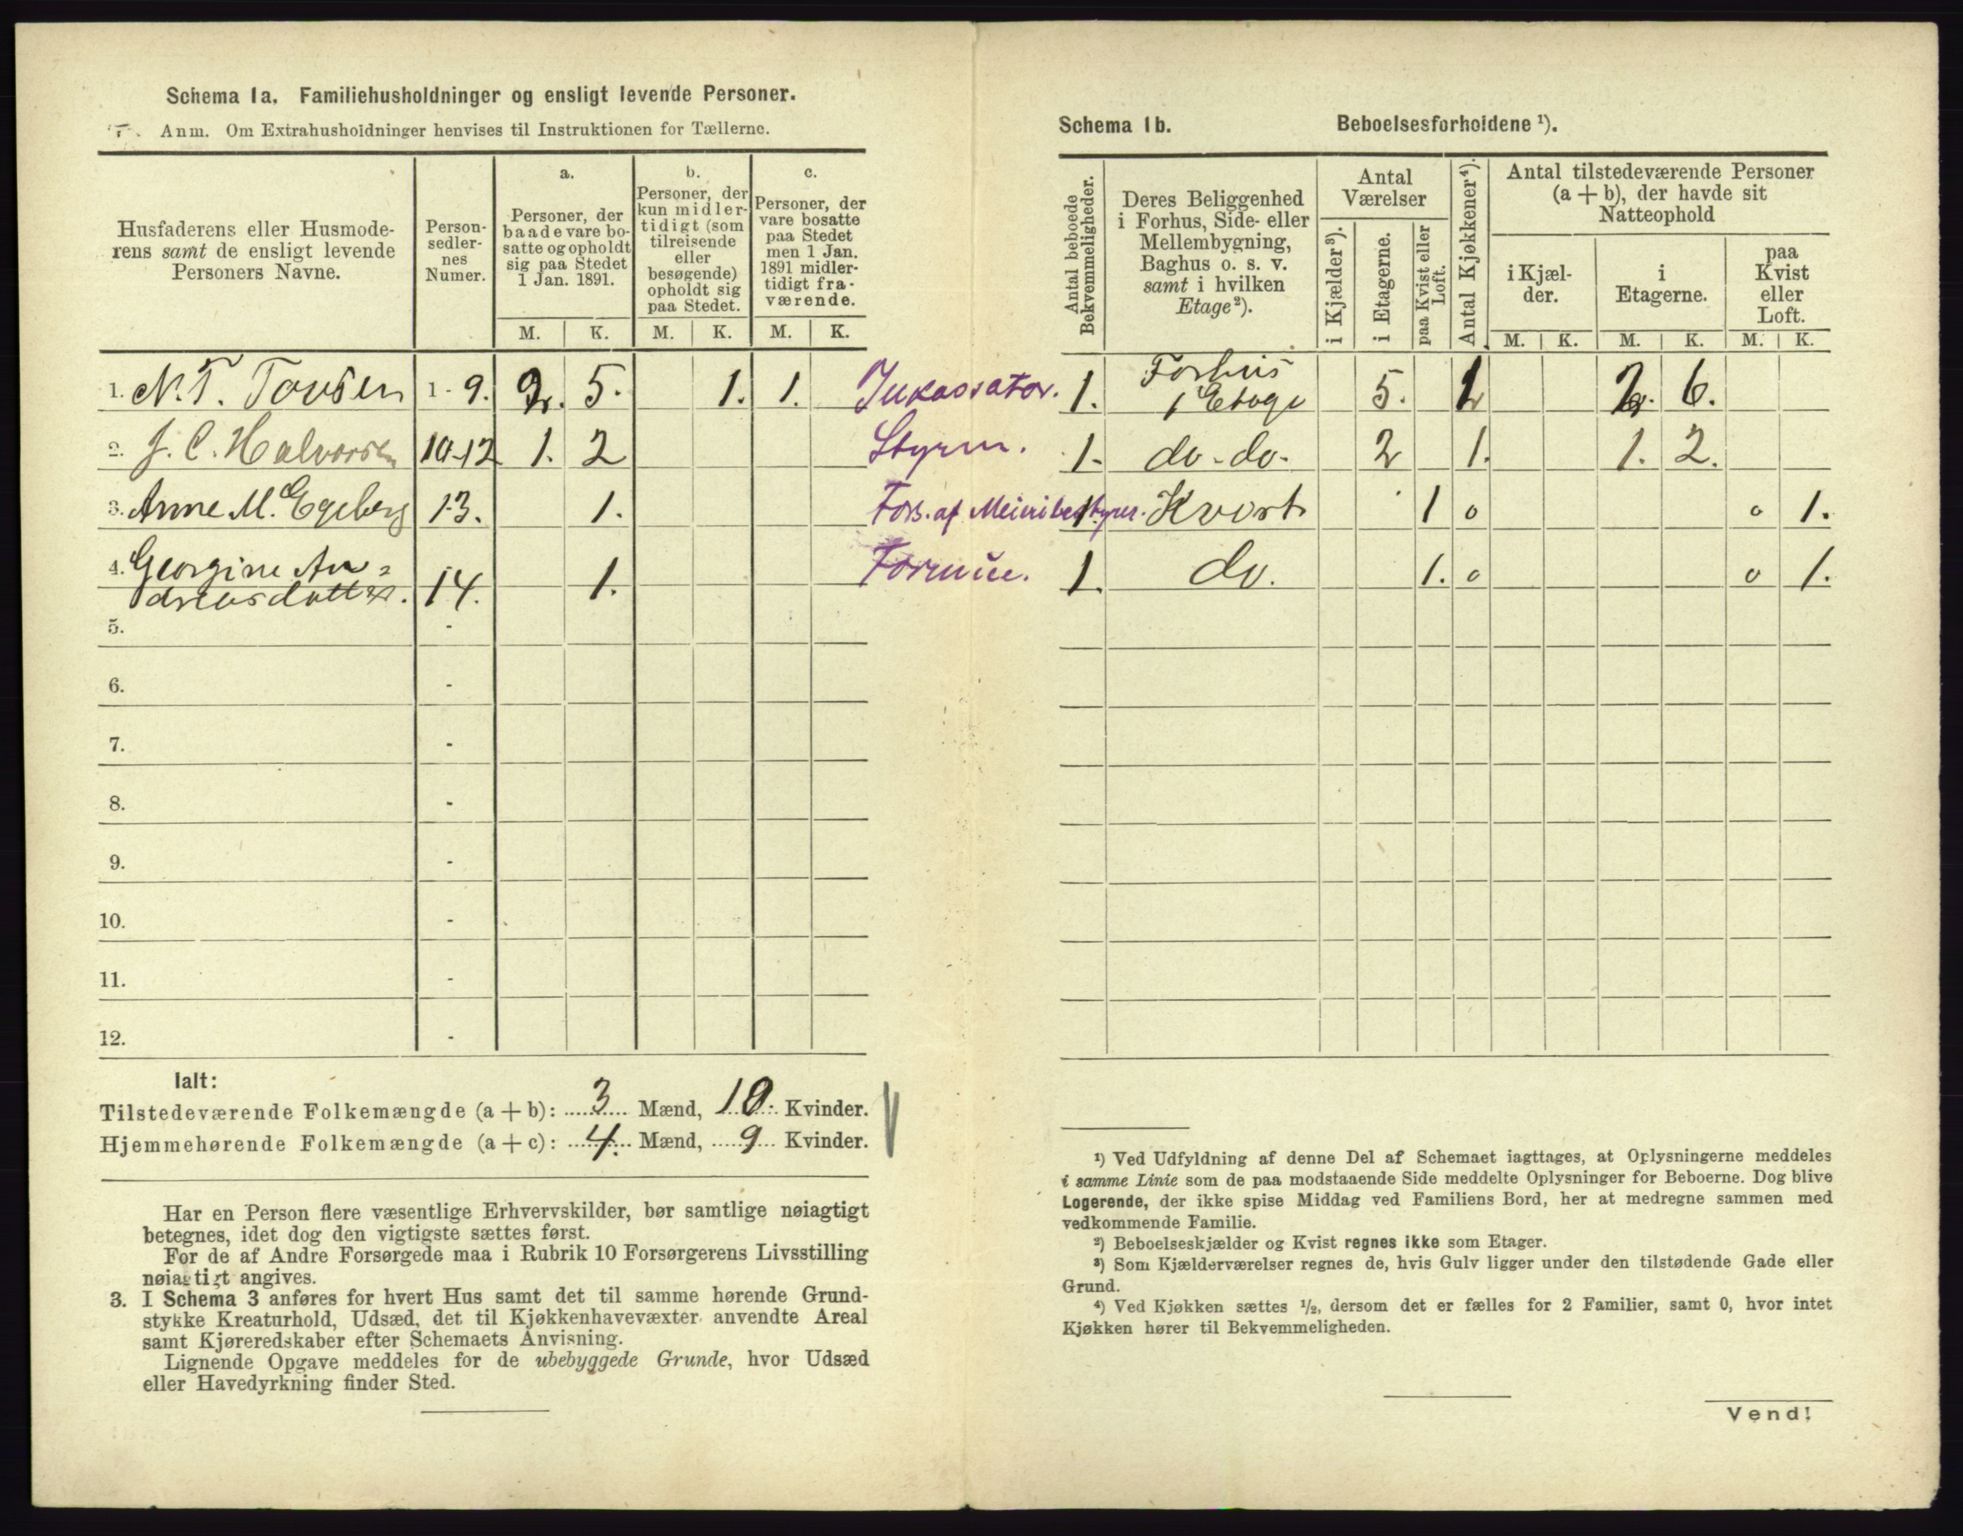 Schema 1a. Familiehusholdninger og ensligt levende Personer.
Anm. Om Extrahusholdninger henvises til Instruktionen for Tællerne.
Husfaderens eller Husmoderens samt de ensligt levende Personers Navne.
Personsedlernes Numer.
a.
Personer, der baade vare bosatte og opholdt sig paa Stedet 1 Jan. 1891.
b.
Personer, der kun midlertidigt (som tilreisende eller besøgende) opholdt sig paa Stedet.
c.
Personer, der vare bosatte paa Stedet men 1 Jan. 1891 midlertidigt fraværende.
M. K. M. K. M. K.
1. N. T. Tovsen 1-9. 2. 5. 1. 1. Inkassator.
2. J. C. Halvorsen 10-12 1. 2 Styrm.
3. Anne M. Egeberg 13. 1. Fors. af Meieribestyrer.
4. Georgine An=
dreasdatter. 14. 1. Formue.
5. -
6. -
7. -
8. -
9. -
10. -
11. -
12. -
Ialt:
Tilstedeværende Folkemængde (a + b): 3 Mænd, 10. Kvinder.
Hjemmehørende Folkemængde (a + c): 4. Mænd, 9 Kvinder.
Har en Person flere væsentlige Erhvervskilder, bør samtlige nøiagtigt
betegnes, idet dog den vigtigste sættes først.
For de af Andre Forsørgede maa i Rubrik 10 Forsørgerens Livsstilling
nøiagtigt angives.
3. I Schema 3 anføres for hvert Hus samt det til samme hørende Grund-
stykke Kreaturhold, Udsæd, det til Kjøkkenhavevæxter anvendte Areal
samt Kjøreredskaber efter Schemaets Anvisning.
Lignende Opgave meddeles for de ubebyggede Grunde, hvor Udsæd
eller Havedyrkning finder Sted.
Schema 1b. Beboelsesforholdene ¹).
Antal beboede Bekvemmeligheder.
Deres Beliggenhed i Forhus, Side- eller Mellembygning, Baghus o. s. v. samt i hvilken Etage²).
Antal Værelser
i Kjælder³).
i Etagerne.
paa Kvist eller Loft.
Antal Kjøkkener⁴).
Antal tilstedeværende Personer (a + b), der havde sit Natteophold
i Kjælder.
i Etagerne.
paa Kvist eller Loft.
M. K. M. K. M. K.
1. Forhus
1 Etage 5. 1 2. 6.
1. do. do. 2 1. 1. 2.
1. Kvist 1 0 0 1.
1. do. 1. 0 0 1.
¹) Ved Udfyldning af denne Del af Schemaet iagttages, at Oplysningerne meddeles
i samme Linie som de paa modstaaende Side meddelte Oplysninger for Beboerne. Dog blive
Logerende, der ikke spise Middag ved Familiens Bord, her at medregne sammen med
vedkommende Familie.
²) Beboelseskjælder og Kvist regnes ikke som Etager.
³) Som Kjælderværelser regnes de, hvis Gulv ligger under den tilstødende Gade eller
Grund.
⁴) Ved Kjøkken sættes ½, dersom det er fælles for 2 Familier, samt 0, hvor intet
Kjøkken hører til Bekvemmeligheden.
Vend!